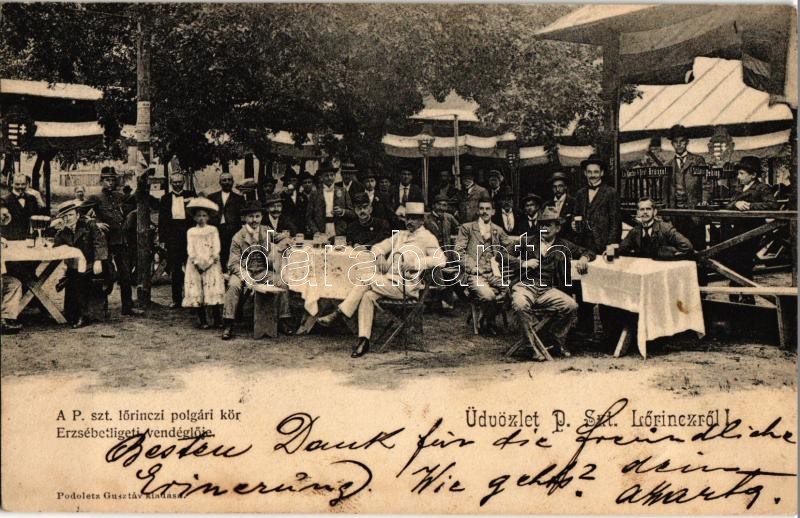 A P. szt. lőrinczi polgári kör
Erzsébetligeti vendéglője.
Üdvözlet P. Szt. Lőrinczről!
Besten Dank für die freundliche
Erinerung. Wie gehts? dein
Podoletz Gusztáv kiadása.
darabanth